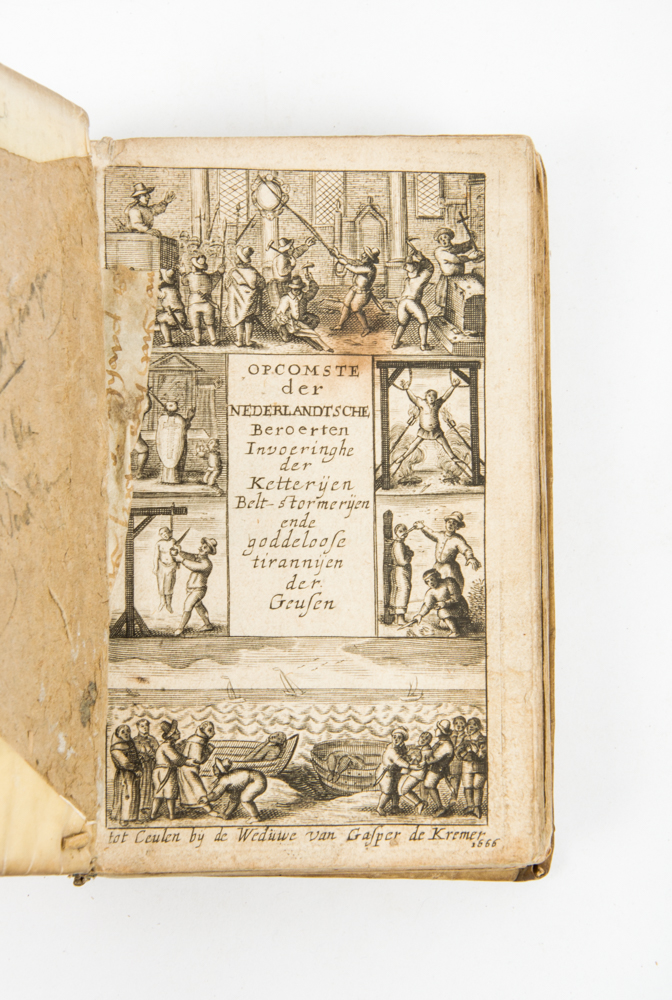 OPCOMSTE
der
NEDERLANDTSCHE
Beroerten
Invoeringhe
der
Ketterijen
Belt-stormerijen
ende
goddelooſe
tirannijen
der
Geuſen
tot Ceulen bij de Weduwe van Gaſper de Kremer
1666